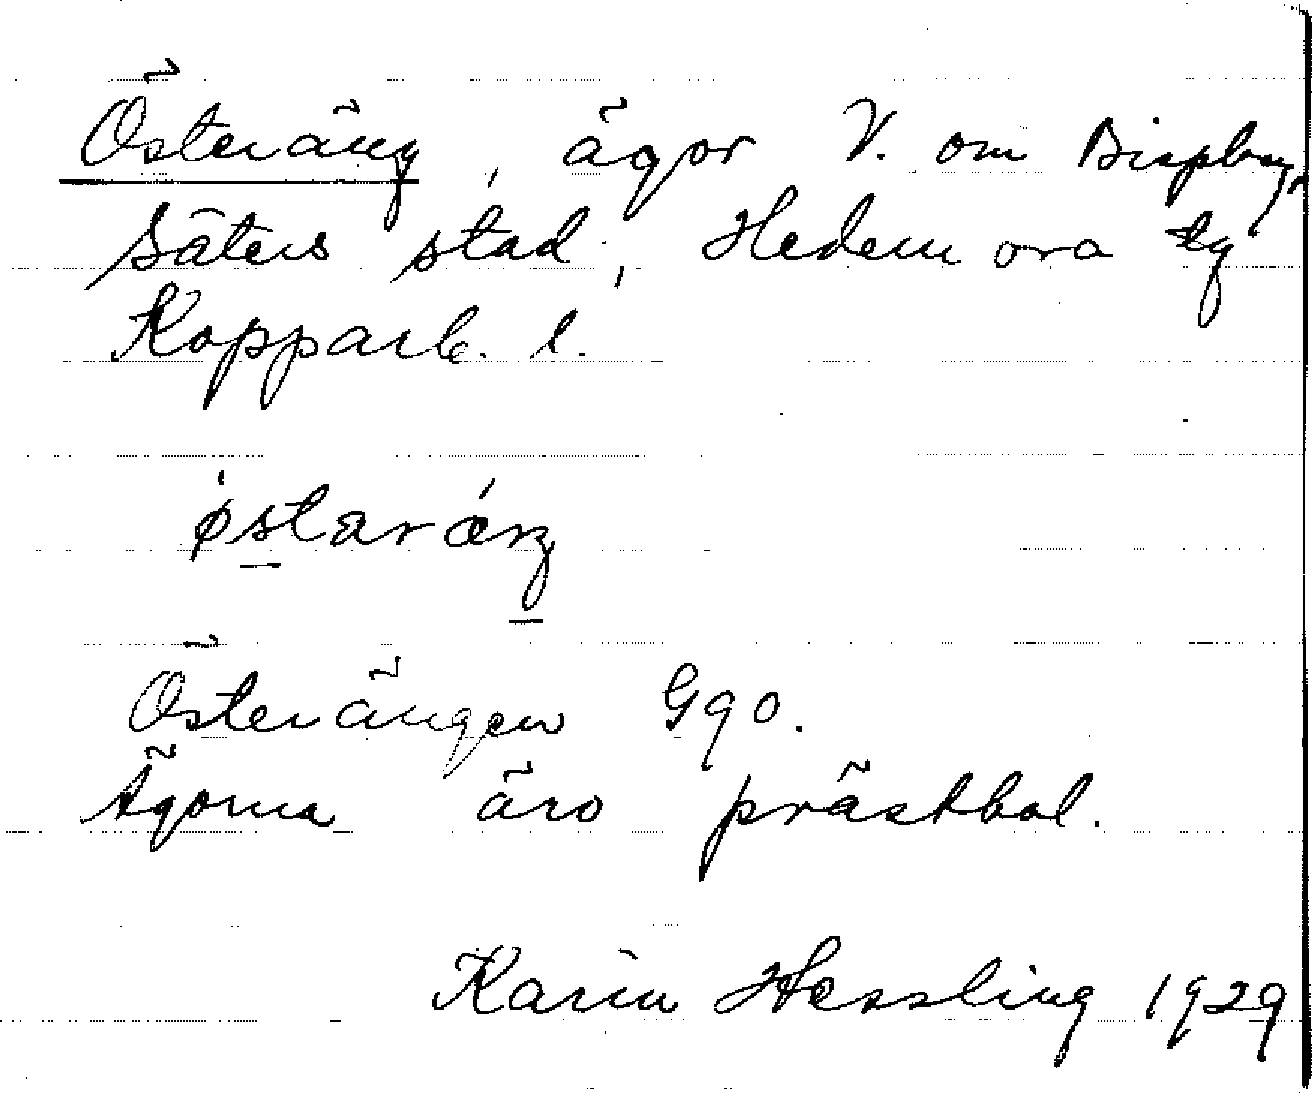 Österäng, ägor V. om Bispberg,
Säters stad, Hedemora tg
Kopparb. l.
östarä́ŋ
Österängen GGO.
Ägorna äro prästbol.
Karin Hessling 1929